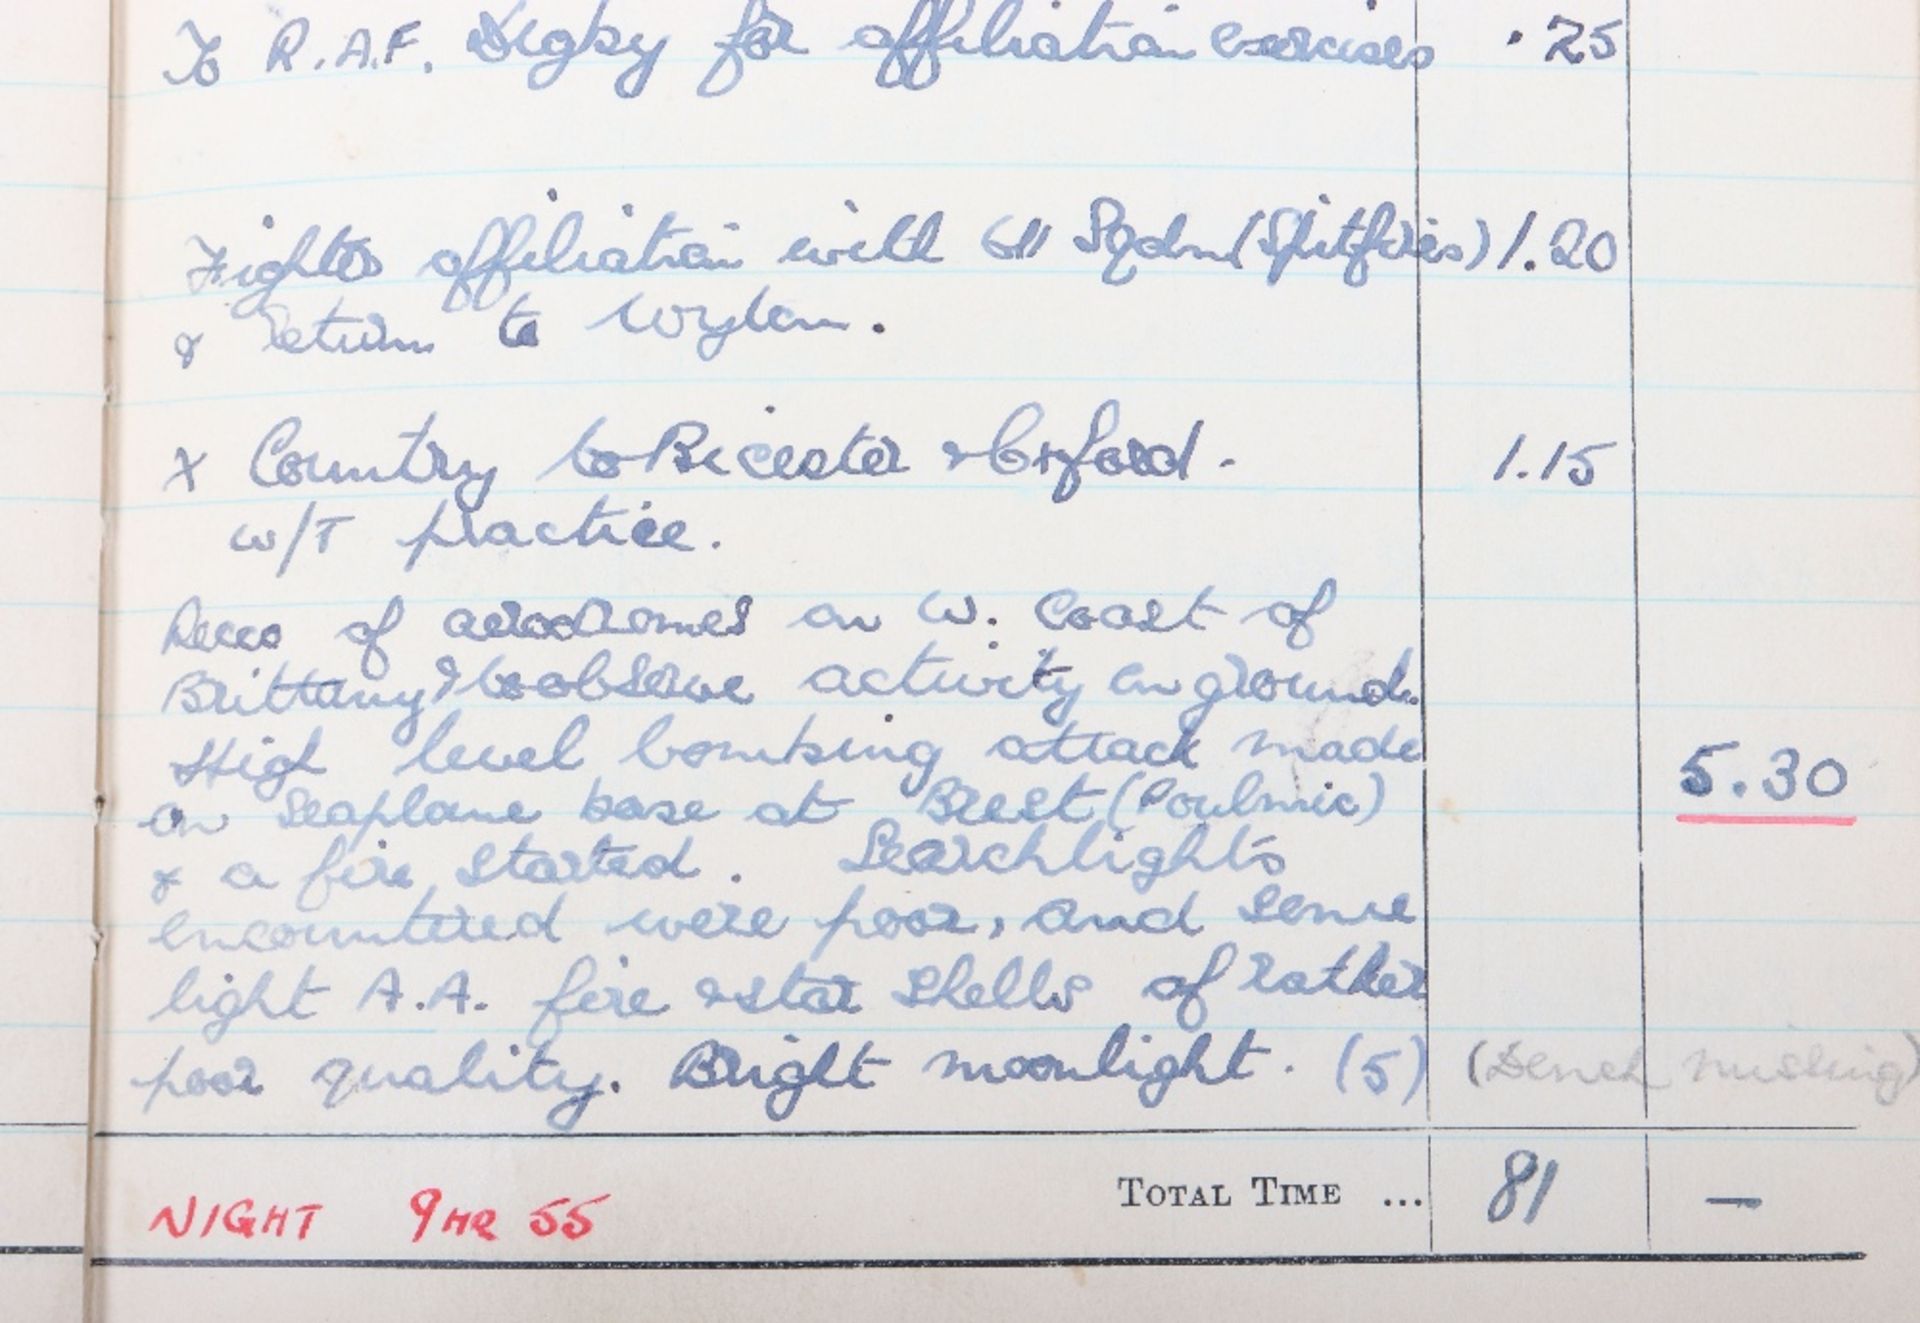 To R.A.F. Digby for affiliation exercises .25
Fighter affiliation with 611 Sqdn (Spitfires) 1.20
& return to Wyton.
X Country to Bicester & Oxford. 1.15
W/T practice.
Recco of aerodromes on W. Coast of
Brittany & to observe activity on ground.
High level bombing attack made
on Seaplane base at Brest (Poulmic) 5.30
& a fire started. Searchlights
encountered were poor, and some
light A.A. fire & star shells of rather
poor quality. Bright moonlight. (5) (Dench missing)
NIGHT 9HR 55 TOTAL TIME ... 81 —